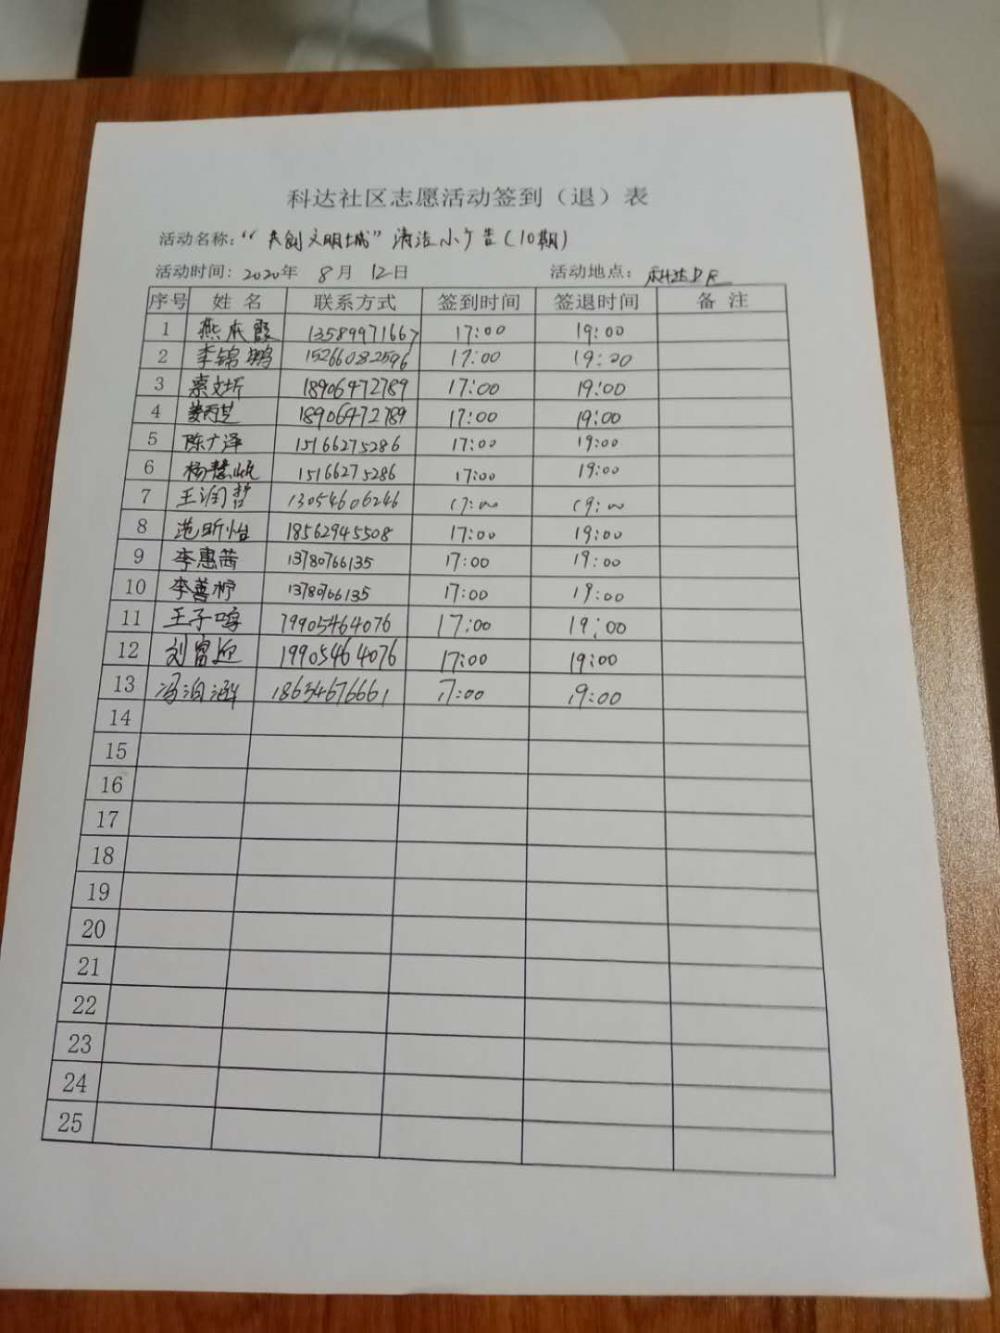 科达社区志愿活动签到（退）表
活动名称：“共创文明城”清洁小广告（10期）
活动时间：2020年 8月 12日 活动地点：科达小区
序号 姓名 联系方式 签到时间 签退时间 备注
1 燕 霞 13589971667 17:00 19:00
2 李锦鹏 15266082596 17:00 19:20
3 18906472789 17:00 19:00
4 18906472789 17:00 19:00
5 陈广泽 15166275286 17:00 19:00
6 杨慧 15166275286 17:00 19:00
7 王润哲 13054606246 17:00 19:00
8 范昕怡 18562945508 17:00 19:00
9 李惠茜 13780766135 17:00 19:00
10 李善 13780766135 17:00 19:00
11 王子鸣 19905464076 17:00 19:00
12 刘富迎 19905464076 17:00 19:00
13 冯 涵 18654676661 17:00 19:00
14
15
16
17
18
19
20
21
22
23
24
25